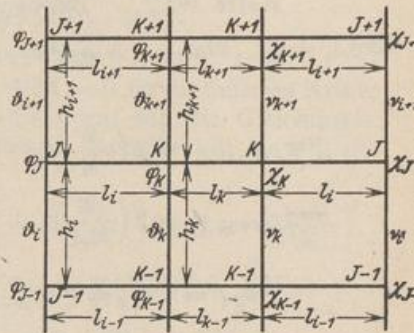 J+1 K+1 K+1 J+1
φJ+1 φK+1 χK+1 χJ+1
li+1 lk+1 li+1
ϑi+1 hi+1 ϑk+1 hk+1 νk+1 νi+1
J K K J
φJ φK χK χJ
li lk li
ϑi hi ϑk hk νk νi
J-1 K-1 K-1 J-1
φJ-1 φK-1 χK-1 χJ-1
li-1 lk-1 li-1